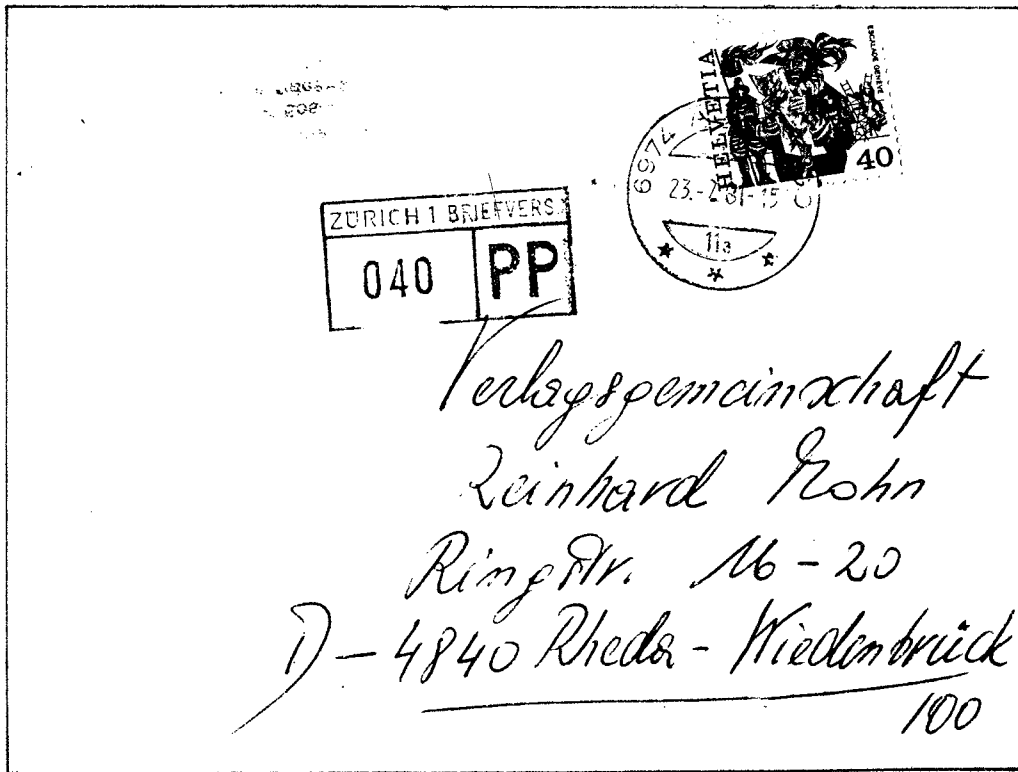 HELVETIA
ESCALADE GENÈVE
40
6974
23.-2.81-15
11a
ZÜRICH 1 BRIEFVERS.
040 PP
Verlagsgemeinschaft
Reinhard Mohn
Ringstr. 16-20
D-4840 Rheda-Wiedenbrück
100